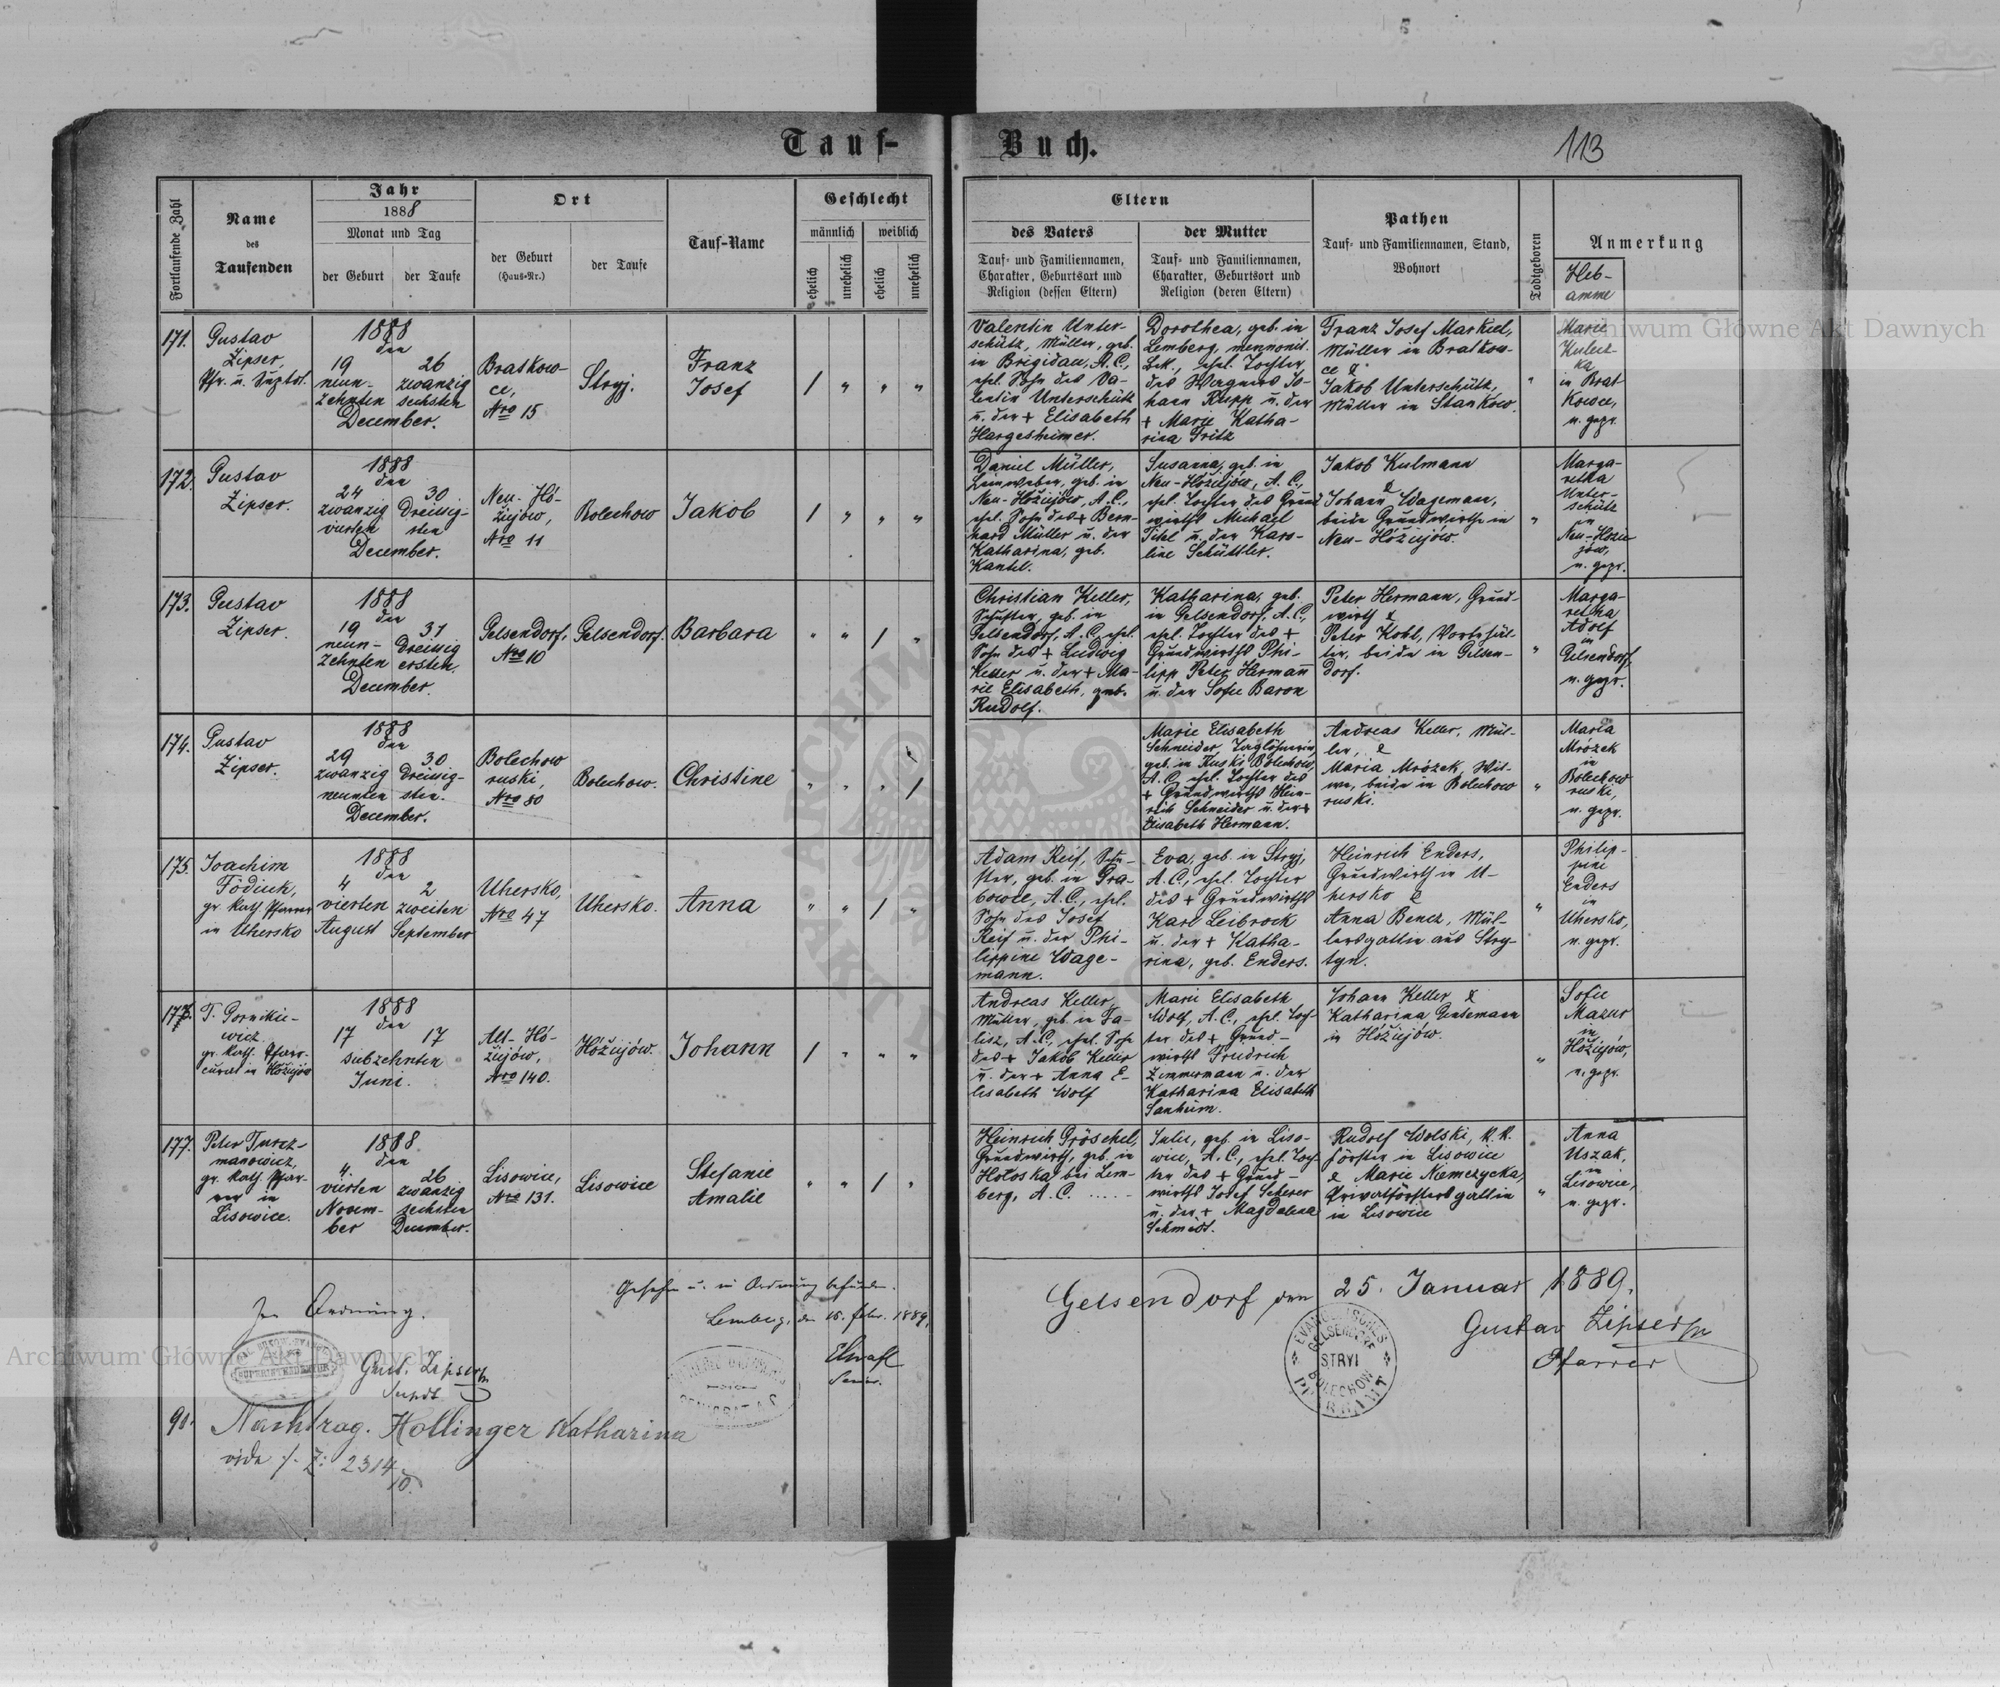 Tauf-Buch.
113
Fortlaufende Zahl
Name
des
Taufenden
Jahr
1888
Monat und Tag
der Geburt
der Taufe
Ort
der Geburt
(Haus-Nr.)
der Taufe
Tauf-Name
Geschlecht
männlich
weiblich
ehelich
unehelich
ehelich
unehelich
Eltern
des Vaters
Tauf- und Familiennamen,
Charakter, Geburtsort und
Religion (dessen Eltern)
der Mutter
Tauf- und Familiennamen,
Charakter, Geburtsort und
Religion (deren Eltern)
Pathen
Tauf- und Familiennamen, Stand,
Wohnort
Todtgeboren
Anmerkung
Heb-
amme
171.
Gustav
Zipser,
Pfr. u. Suptdt.
1888
den
19
neun-
zehnten
26
zwanzig
sechsten
December.
Bratkow-
ce,
Nro 15
Stryj.
Franz
Josef
Valentin Unter-
schütz, Müller, geb.
in Brigidau, A.C.,
ehel. Sohn des Va-
lentin Unterschütz
u. der + Elisabeth
Hargesheimer.
Dorothea, geb. in
Lemberg, mennonit.
Bek., ehel. Tochter
des Wagners Jo-
hann Rupp u. der
+ Marie Katha-
rina Fritz
Franz Josef Markiel,
Müller in Bratkow-
ce &
Jakob Unterschütz,
Müller in Stankow.
Marie
in Brat-
kowce,
n. gepr.
172.
Gustav
Zipser.
1888
den
24
zwanzig
vierten
30
Dreissig-
sten
December.
Neu-Hó-
żiejów,
Nro 11
Bolechow
Jakob
Daniel Müller,
Leinweber, geb. in
Neu-Hóżiejów, A.C.,
ehel. Sohn des + Bern-
hard Müller u. der
Katharina, geb.
Kantel.
Susanna, geb. in
Neu-Hóżiejów, A.C.,
ehel. Tochter des Grund
wirths Michael
u. der Karo-
line Schüttler.
Jakob Kulmann
&
Johann Wagemann,
beide Grundwirthe in
Neu-Hóżiejów.
Marga-
retha
Unter-
schütz
in
Neu-Hóżie
jów,
n. gepr.
173.
Gustav
Zipser.
1888
den
19
neun-
zehnten
31
Dreissig
ersten
December.
Gelsendorf,
Nro 10
Gelsendorf.
Barbara
Christian Keller,
Schuster, geb. in
Gelsendorf, A.C., ehel.
Sohn des + Ludwig
Keller u. der + Ma-
rie Elisabeth, geb.
Rudolf.
Katharina, geb.
in Gelsendorf, A.C.,
ehel. Tochter des +
Grundwirths Phi-
lipp Peter Hermann
u. der Sofie Baron
Peter Hermann, Grund-
wirth &
Peter Kohl,
beide in Gelsen-
dorf.
Marga-
retha
Adolf
in
Gelsendorf,
n. gepr.
174.
Gustav
Zipser.
1888
den
29
zwanzig
neunten
30
Dreissig-
sten.
December.
Bolechow
ruski,
Nro 80
Bolechow.
Christine
Marie Elisabeth
Schneider, Taglöhnerin
geb. in Ruski Bolechow,
A.C., ehel. Tochter des
+ Grundwirths Hein-
rich Schneider u. der +
Elisabeth Hermann.
Andreas Keller, Mül-
ler, &
Maria Mrózek, Wit-
we, beide in Bolechow
ruski.
Maria
Mrózek
in
Bolechow
ruski,
n. gepr.
175.
Joachim
Fódiuk,
gr. kath. Pfarrer
in Uhersko
1888
den
4
vierten
August
2
zweiten
September
Uhersko,
Nro 47
Uhersko.
Anna
Adam Reif, Schu-
ster, geb. in Gra-
bowce, A.C., ehel.
Sohn des Josef
Reif u. der Phi-
lippine Wage-
mann.
Eva, geb. in Stryj,
A.C., ehel. Tochter
des + Grundwirths
Karl Leibrock
u. der + Katha-
rina, geb. Enders.
Heinrich Enders,
Grundwirth in U-
hersko &
Anna Bencz, Mül-
lersgattin aus Stry-
Philip-
pine
Enders
in
Uhersko,
n. gepr.
1888
den
17
17
siebzehnten
Juni.
gr. kath. Pfarr-
in Hóżiejów
Alt-Hó-
żiejów,
Nro 140.
Hóżiejów.
Johann
Andreas Keller,
Müller, geb. in Fa-
lisz, A.C., ehel. Sohn
des + Jakob Keller
u. der + Anna E-
lisabeth Wolf
Marie Elisabeth
Wolf, A.C., ehel. Toch-
ter des + Grund-
wirths Friedrich
Zimmermann u. der
Katharina Elisabeth
Johann Keller &
Katharina
in Hóżiejów.
Sofie
Mazur
in
Hóżiejów,
n. gepr.
177.
Peter Turcz-
manowicz,
gr. kath. Pfar-
rer in
Lisowice.
1888.
den
4.
vierten
Novem-
ber
26
zwanzig
sechsten
December.
Lisowice,
Nro 131.
Lisowice
Stefanie
Amalie
Heinrich Gröschel,
Grundwirth, geb. in
Hołosko, bei Lem-
berg, A.C.
Julie, geb. in Liso-
wice, A.C., ehel. Toch
ter des + Grund-
wirths Josef Scherer
u. der + Magdalena
Schmidt.
Rudolf Wolski, K.K.
Förster in Lisowice
& Marie Niemczycka,
Privatförstersgattin
in Lisowice
Anna
Uszak,
in
Lisowice,
n. gepr.
In Ordnung.
Gust. Zipser
Supdt
Gesehen u. in Ordnung befunden.
Lemberg, den 15. Febr. 1889.
Senior.
Gelsendorf den 25. Januar 1889.
Gustav Zipser
Pfarrer
EVANGELISCHES
GELSENDORF
STRYI
BOLECHOW
PFARRAMT
90.
Nachtrag. Hollinger Katharina
vide Z: 2314
Archiwum Główne Akt Dawnych
Archiwum Główne Akt Dawnych